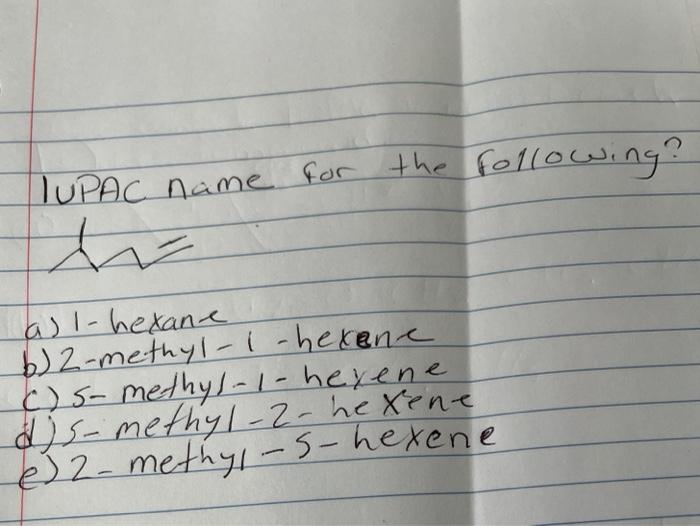 IUPAC name for the following?
a) 1-hexane
b) 2-methyl-1-hexene
c) 5-methyl-1-hexene
d) 5-methyl-2-hexene
e) 2-methyl-5-hexene